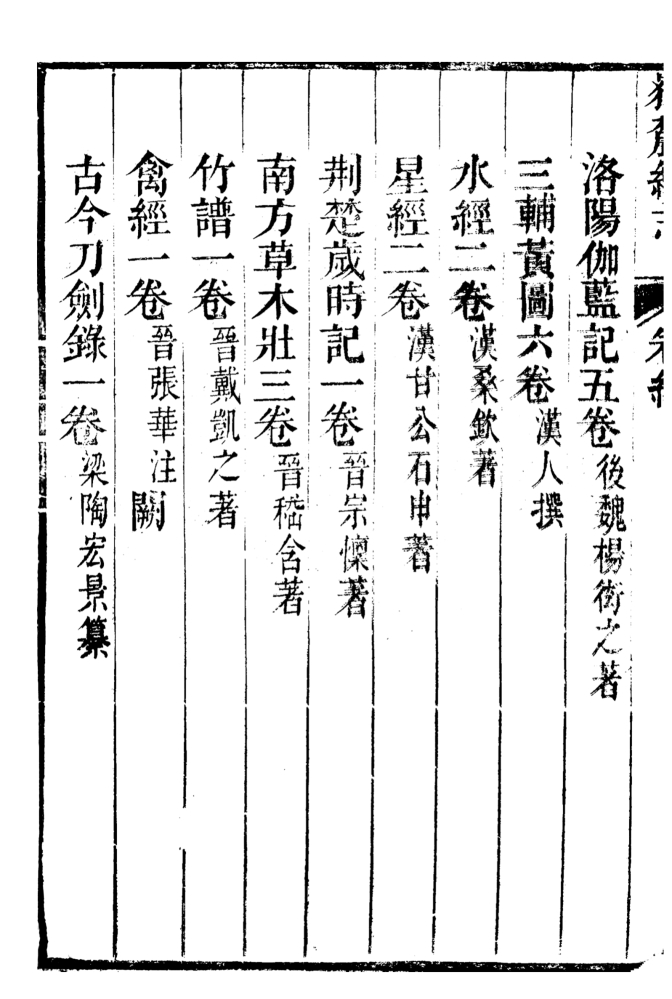 洛陽伽藍記五卷後魏楊衒之著
三輔黃圖六卷漢人撰
水經二卷漢桑欽著
星經二卷漢甘公石申著
荆楚歲時記一卷晉宗懍著
南方草木壯三卷晉嵇含著
竹譜一卷晉戴凱之著
禽經一卷晉張華注闕
古今刀劍錄一卷梁陶宏景纂